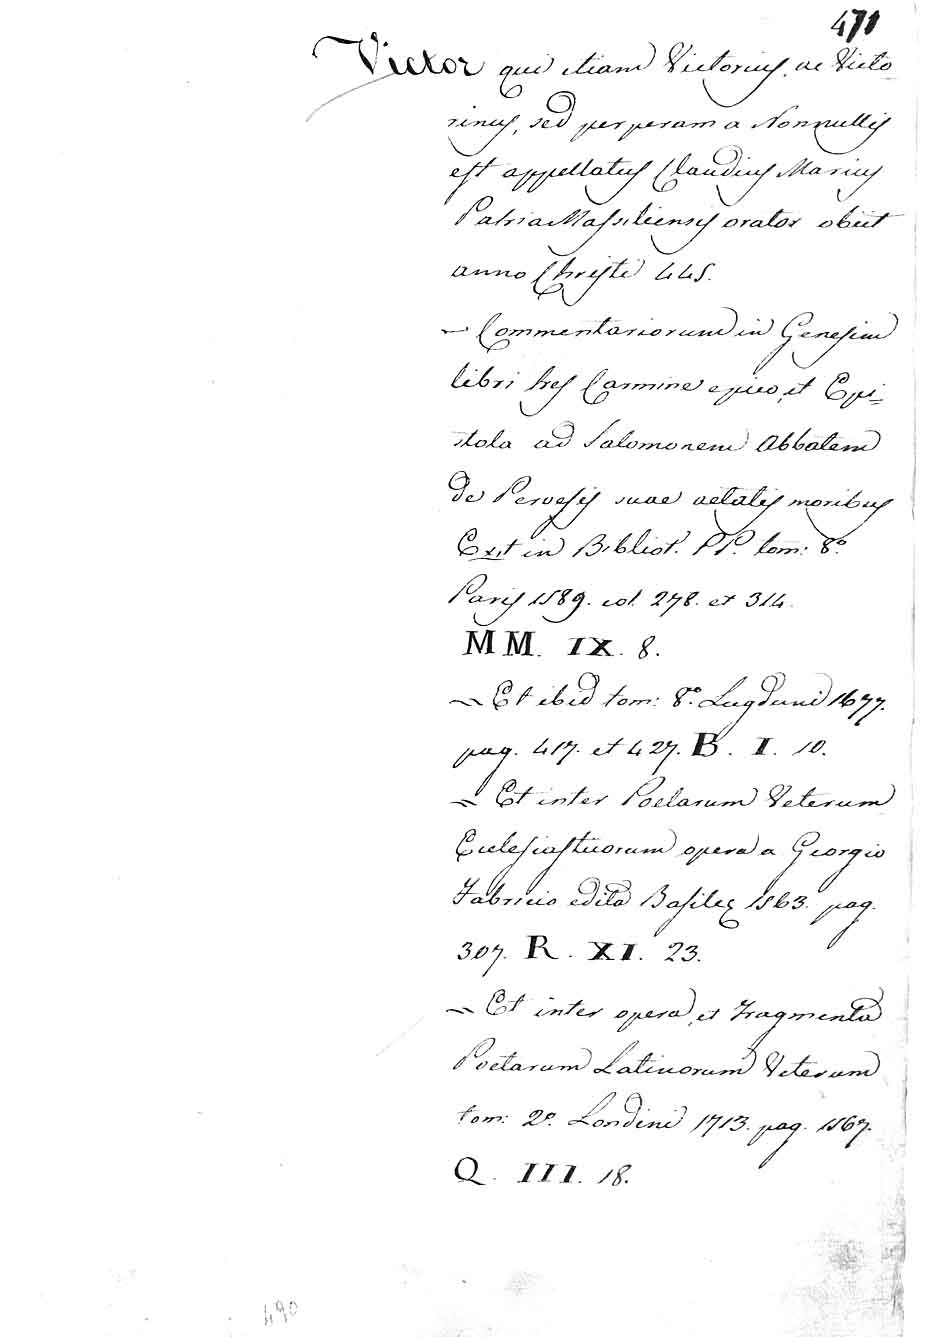 471
Victor qui etiam Victorius, ac Victo
rinus, sed perperam a Nonnullis
est appellatus Claudius Marius
Patria Massiliensis orator obiit
anno Christi 445.
~ Commentariorum in Genesim
libri tres Carmine epico, et Epi=
stola ad Salomonem Abbatem
de Perversis suae aetatis moribus
Ext in Bibliot. PP. tom: 8.º
Paris 1589. col. 278. et 314.
MM. IX. 8.
~ Et ibid tom: 8.º Lugduni 1677.
pag. 417. et 427. B. I. 10.
~ Et inter Poetarum Veterum
Ecclesiasticorum opera a Georgio
Fabricio edita Basileę 1563. pag.
307. R. XI. 23.
~ Et inter opera, et Fragmenta
Poetarum Latinorum Veterum
tom: 2.º Londini 1713. pag. 1567.
Q. III. 18.
490